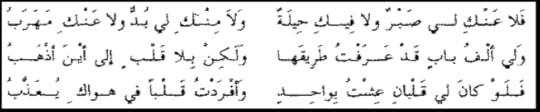 فَلا عَنْكِ لـي صَبْرٌ ولا فيـكِ حِيلَةٌ وَلاَ مِنْكِ لي بُدٌّ ولا عَنْكِ مَهْرَبُ
وَلي أَلْفُ بابٍ قَدْ عَـرَفْتُ طَرِيقَها وَلَكِنْ بِلا قَلْبٍ إلى أَيْنَ أَذْهَبُ
فَلَـوْ كانَ لي قَلْبانِ عِشْتُ بِواحِدٍ وَأَفْرَدْتُ قَلْباً في هَواكِ يُعَذَّبُ